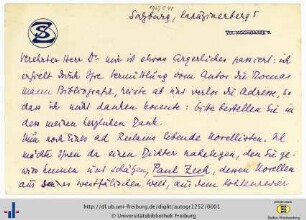 Salzburg, Kapuzinerberg 5
SZ
TEL. HOCHGASSE 2
Verehrter Herr Dr mir ist etwas Ärgerliches passiert: ich
erhielt durch Ihre Vermittlung vom Autor die Thomas
Mann Bibliografie, reiste ab und verlor die Adresse, so
dass ich nicht danken konnte: bitte bestellen Sie in
dem meinen herzlichen Dank.
Nun noch Eines ad Reclams lebende Novellisten. Ich
möchte Ihnen da einen Dichter nahelegen, den Sie ge-
wiss kennen und schätzen, Paul Zech, dessen Novellen
aus seiner westfälischen Welt, aus dem Kohlenrevier
http://dl.ub.uni-freiburg.de/diglit/autogr1252/0001
© Universitätsbibliothek Freiburg